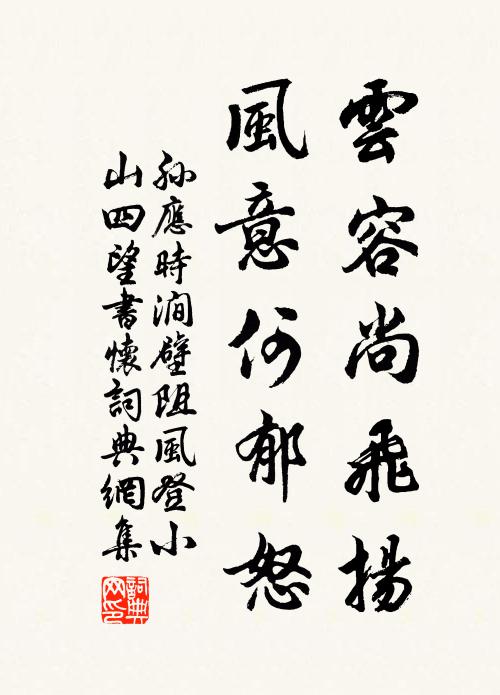 雲容尚飛揚
風意何郁怒
孙應時澗壁阻風登小
山四望書懷詞典網集
詞典
网印